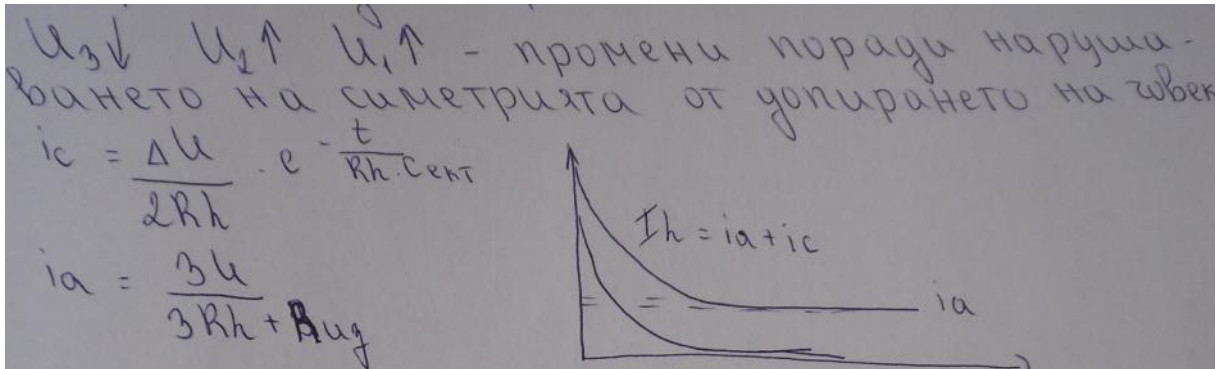 U₃↓ U₂↑ U₁↑ - промени поради наруша-
ването на симетрията от допирането на човек
ic = ΔU / 2Rh . e^(- t / Rh.Cект)
ia = 3U / 3Rh + Rиз
Ih = ia + ic
ia